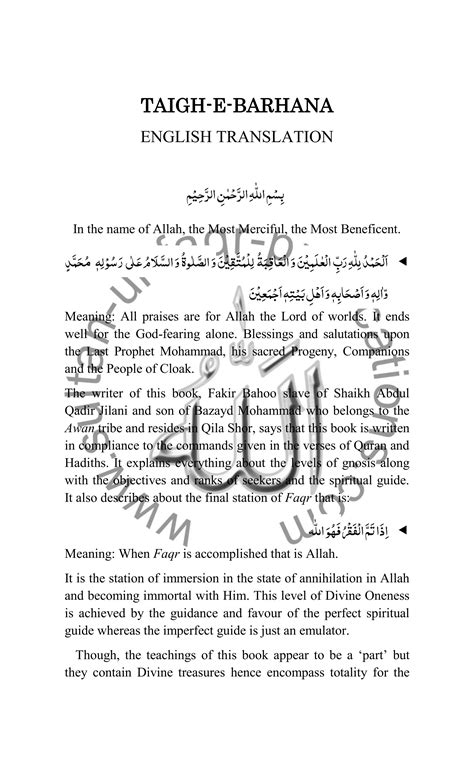 TAIGH-E-BARHANA
ENGLISH TRANSLATION
بِسْمِ اللّٰهِ الرَّحْمٰنِ الرَّحِيْمِ
In the name of Allah, the Most Merciful, the Most Beneficent.
اَلْحَمْدُ لِلّٰهِ رَبِّ الْعٰلَمِيْنَ وَالْعَاقِبَةُ لِلْمُتَّقِيْنَ وَالصَّلٰوةُ وَالسَّلَامُ عَلٰى رَسُوْلِهٖ مُحَمَّدٍ
وَّاٰلِهٖ وَاَصْحَابِهٖ وَاَهْلِ بَيْتِهٖ اَجْمَعِيْنَ
Meaning: All praises are for Allah the Lord of worlds. It ends
well for the God-fearing alone. Blessings and salutations upon
the Last Prophet Mohammad, his sacred Progeny, Companions
and the People of Cloak.
The writer of this book, Fakir Bahoo slave of Shaikh Abdul
Qadir Jilani and son of Bazayd Mohammad who belongs to the
Awan tribe and resides in Qila Shor, says that this book is written
in compliance to the commands given in the verses of Quran and
Hadiths. It explains everything about the levels of gnosis along
with the objectives and ranks of seekers and the spiritual guide.
It also describes about the final station of Faqr that is:
اِذَا تَمَّ الْفَقْرُ فَهُوَ اللّٰهُ
Meaning: When Faqr is accomplished that is Allah.
It is the station of immersion in the state of annihilation in Allah
and becoming immortal with Him. This level of Divine Oneness
is achieved by the guidance and favour of the perfect spiritual
guide whereas the imperfect guide is just an emulator.
Though, the teachings of this book appear to be a ‘part’ but
they contain Divine treasures hence encompass totality for the
الله